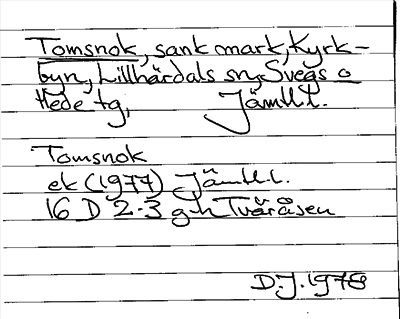 Tomsnok, sank mark, Kyrk-
byn, Lillhärdals sn, Svegs o
Hede tg, Jämtl.l.
Tomsnok
ek (1977) Jämtl.l.
16 D 2-3 g-h Tvåråsen
D.J. 1978